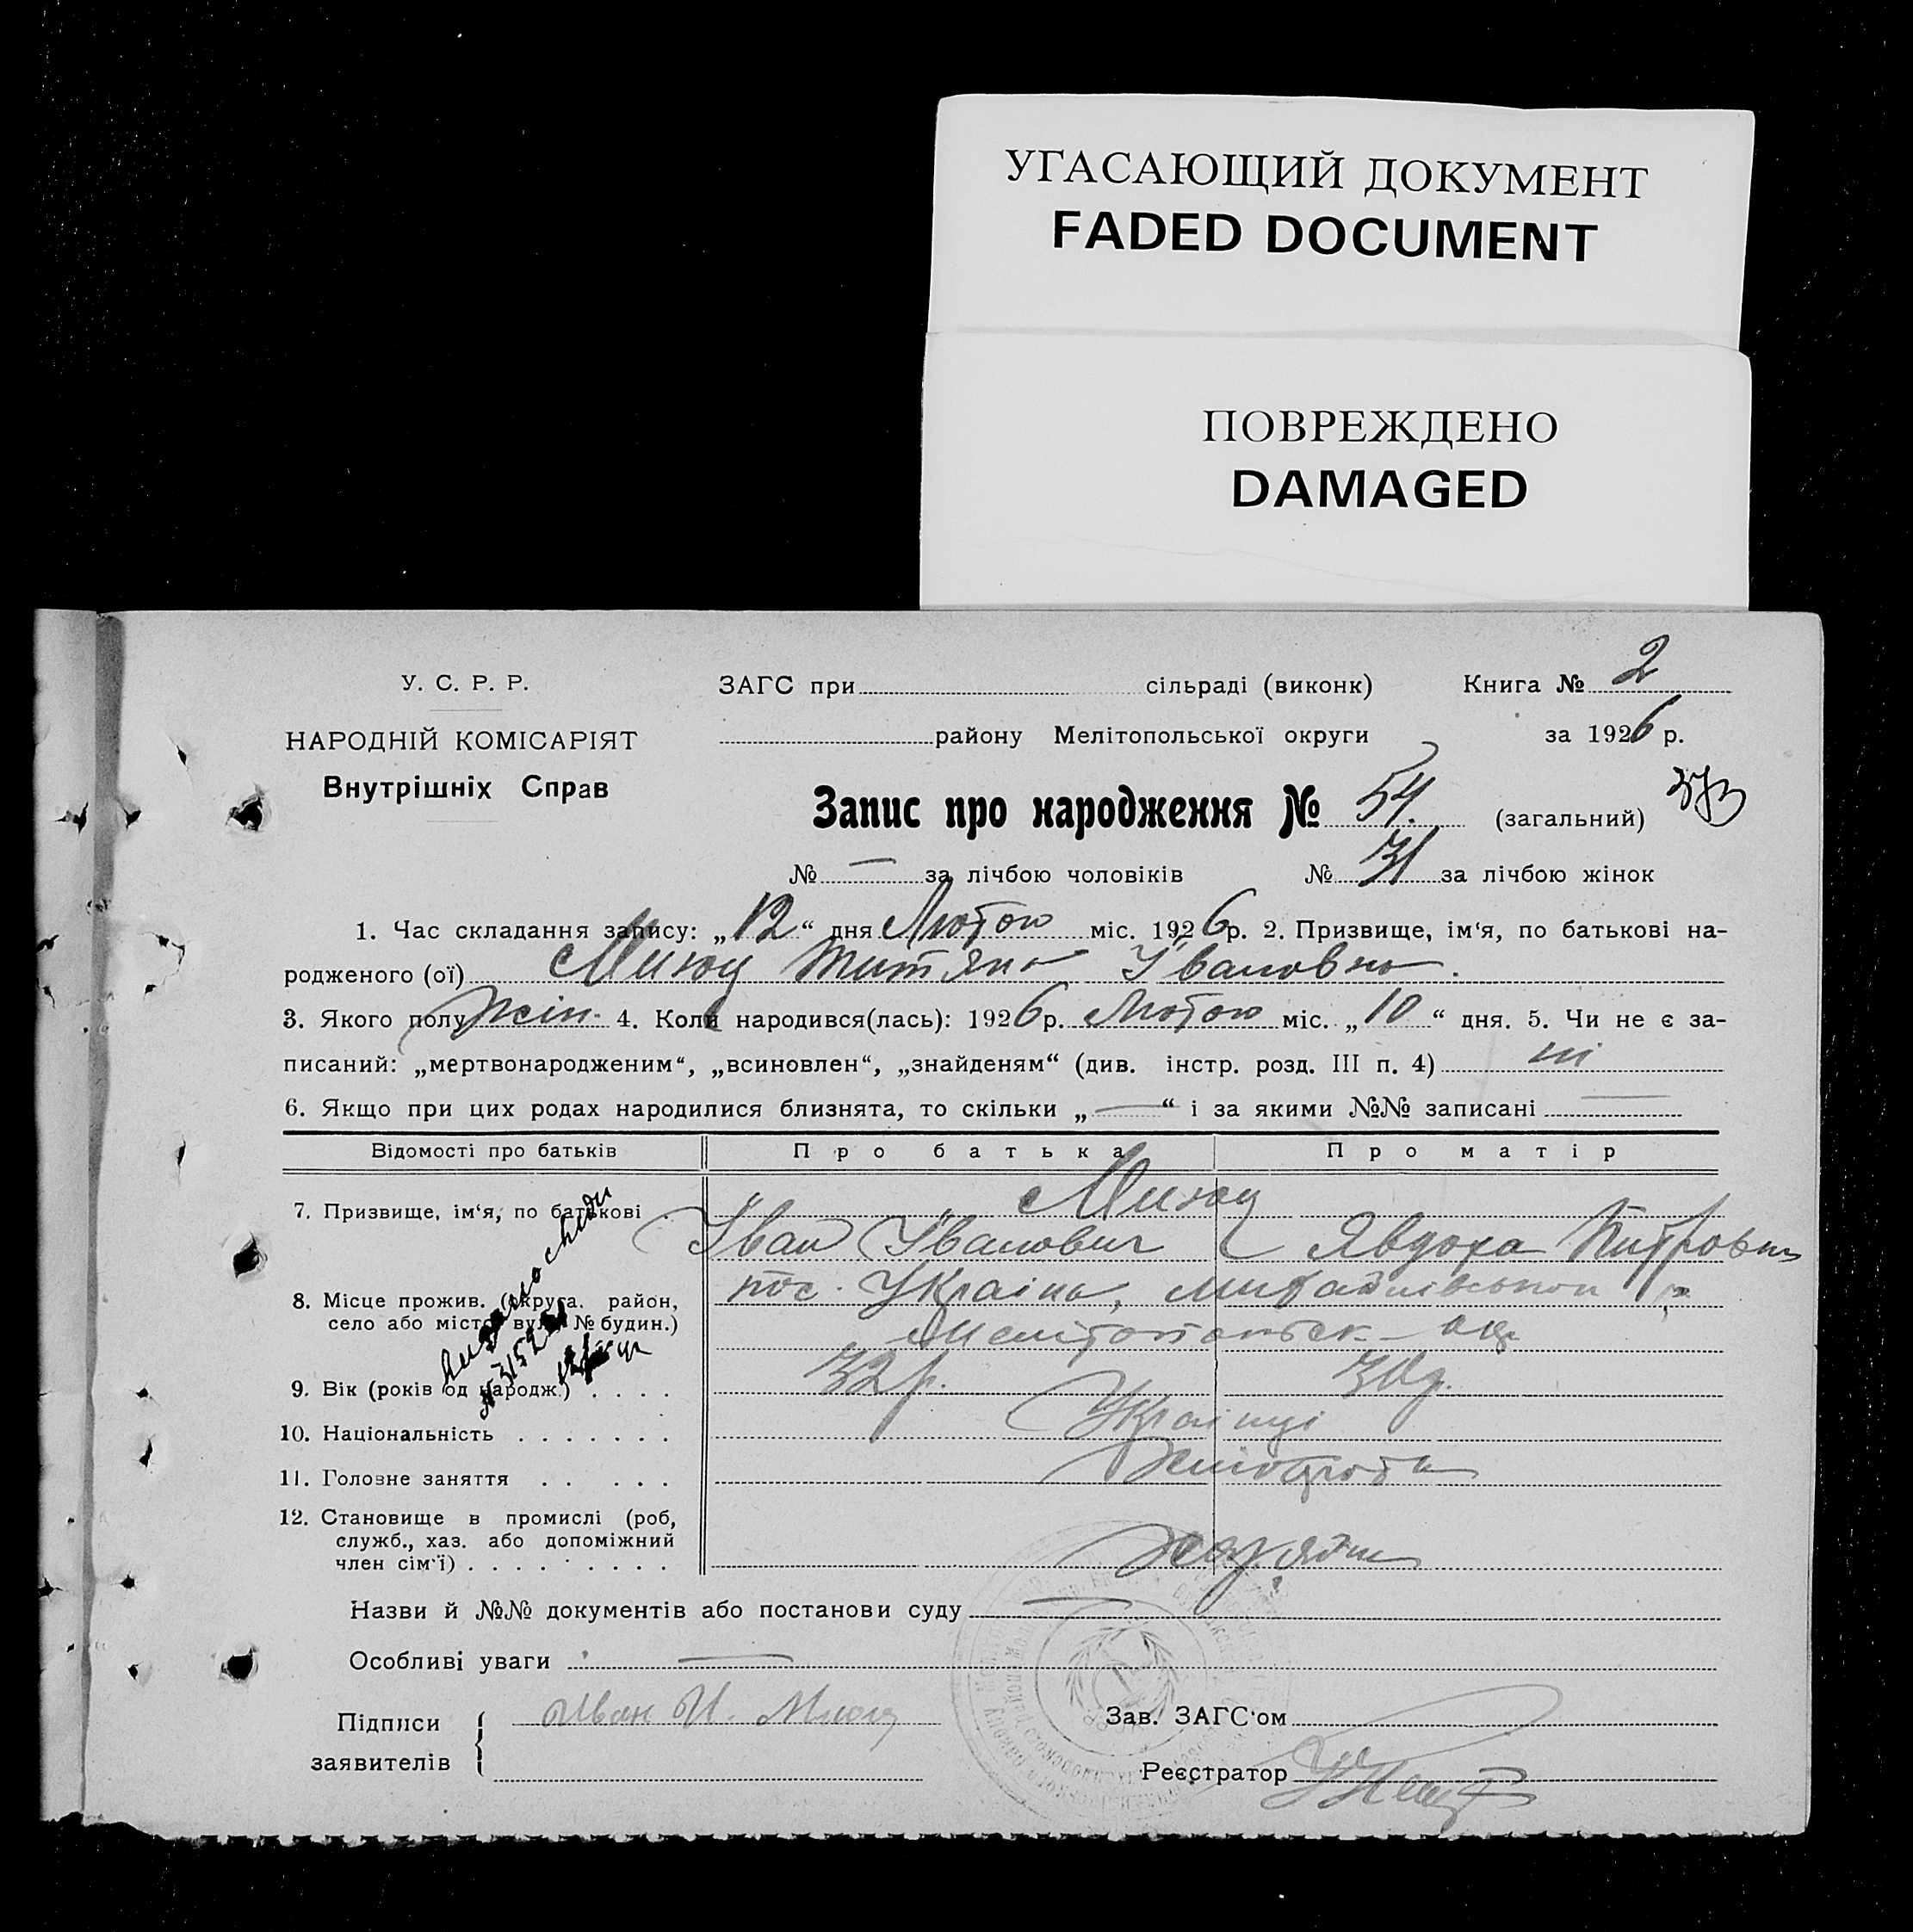 УГАСАЮЩИЙ ДОКУМЕНТ
FADED DOCUMENT
ПОВРЕЖДЕНО
DAMAGED
У. С. Р. Р.
НАРОДНІЙ КОМІСАРІЯТ
Внутрішніх Справ
ЗАГС при сільраді (виконк) Книга № 2
району Мелітопольської округи за 1926 р.
Запис про народження № 54. (загальний) 373
№ — за лічбою чоловіків № 31 за лічбою жінок
1. Час складання запису: „12“ дня Лютого міс. 1926р. 2. Призвище, ім‘я, по батькові на-
родженого (ої) Титяна Івановна.
3. Якого полу жін. 4. Коли народився(лась): 1926р. Лютого міс. „10“ дня. 5. Чи не є за-
писаний: „мертвонародженим“, „всиновлен“, „знайденям“ (див. інстр. розд. III п. 4) ні
6. Якщо при цих родах народилися близнята, то скільки „—“ і за якими №№ записані —
Відомості про батьків Про батька Про матір
7. Призвище, ім‘я, по батькові
Іван Іванович Явдоха Питровна
8. Місце прожив. (округа, район,
село або місто, вул. № будин.)
пос. Україна, Михайлівськой р.
Мелітопольск. окр
9. Вік (років од народж.) . . . . 32 р. 30 р.
10. Національність . . . . . . . Українці
11. Головне заняття . . . . . Хліборобы
12. Становище в промислі (роб,
служб., хаз. або допоміжний
член сім‘ї) . . . . . . . .
Назви й №№ документів або постанови суду —
Особливі уваги —
Підписи
заявителів
Иван И.
Зав. ЗАГС‘ом
Реєстратор